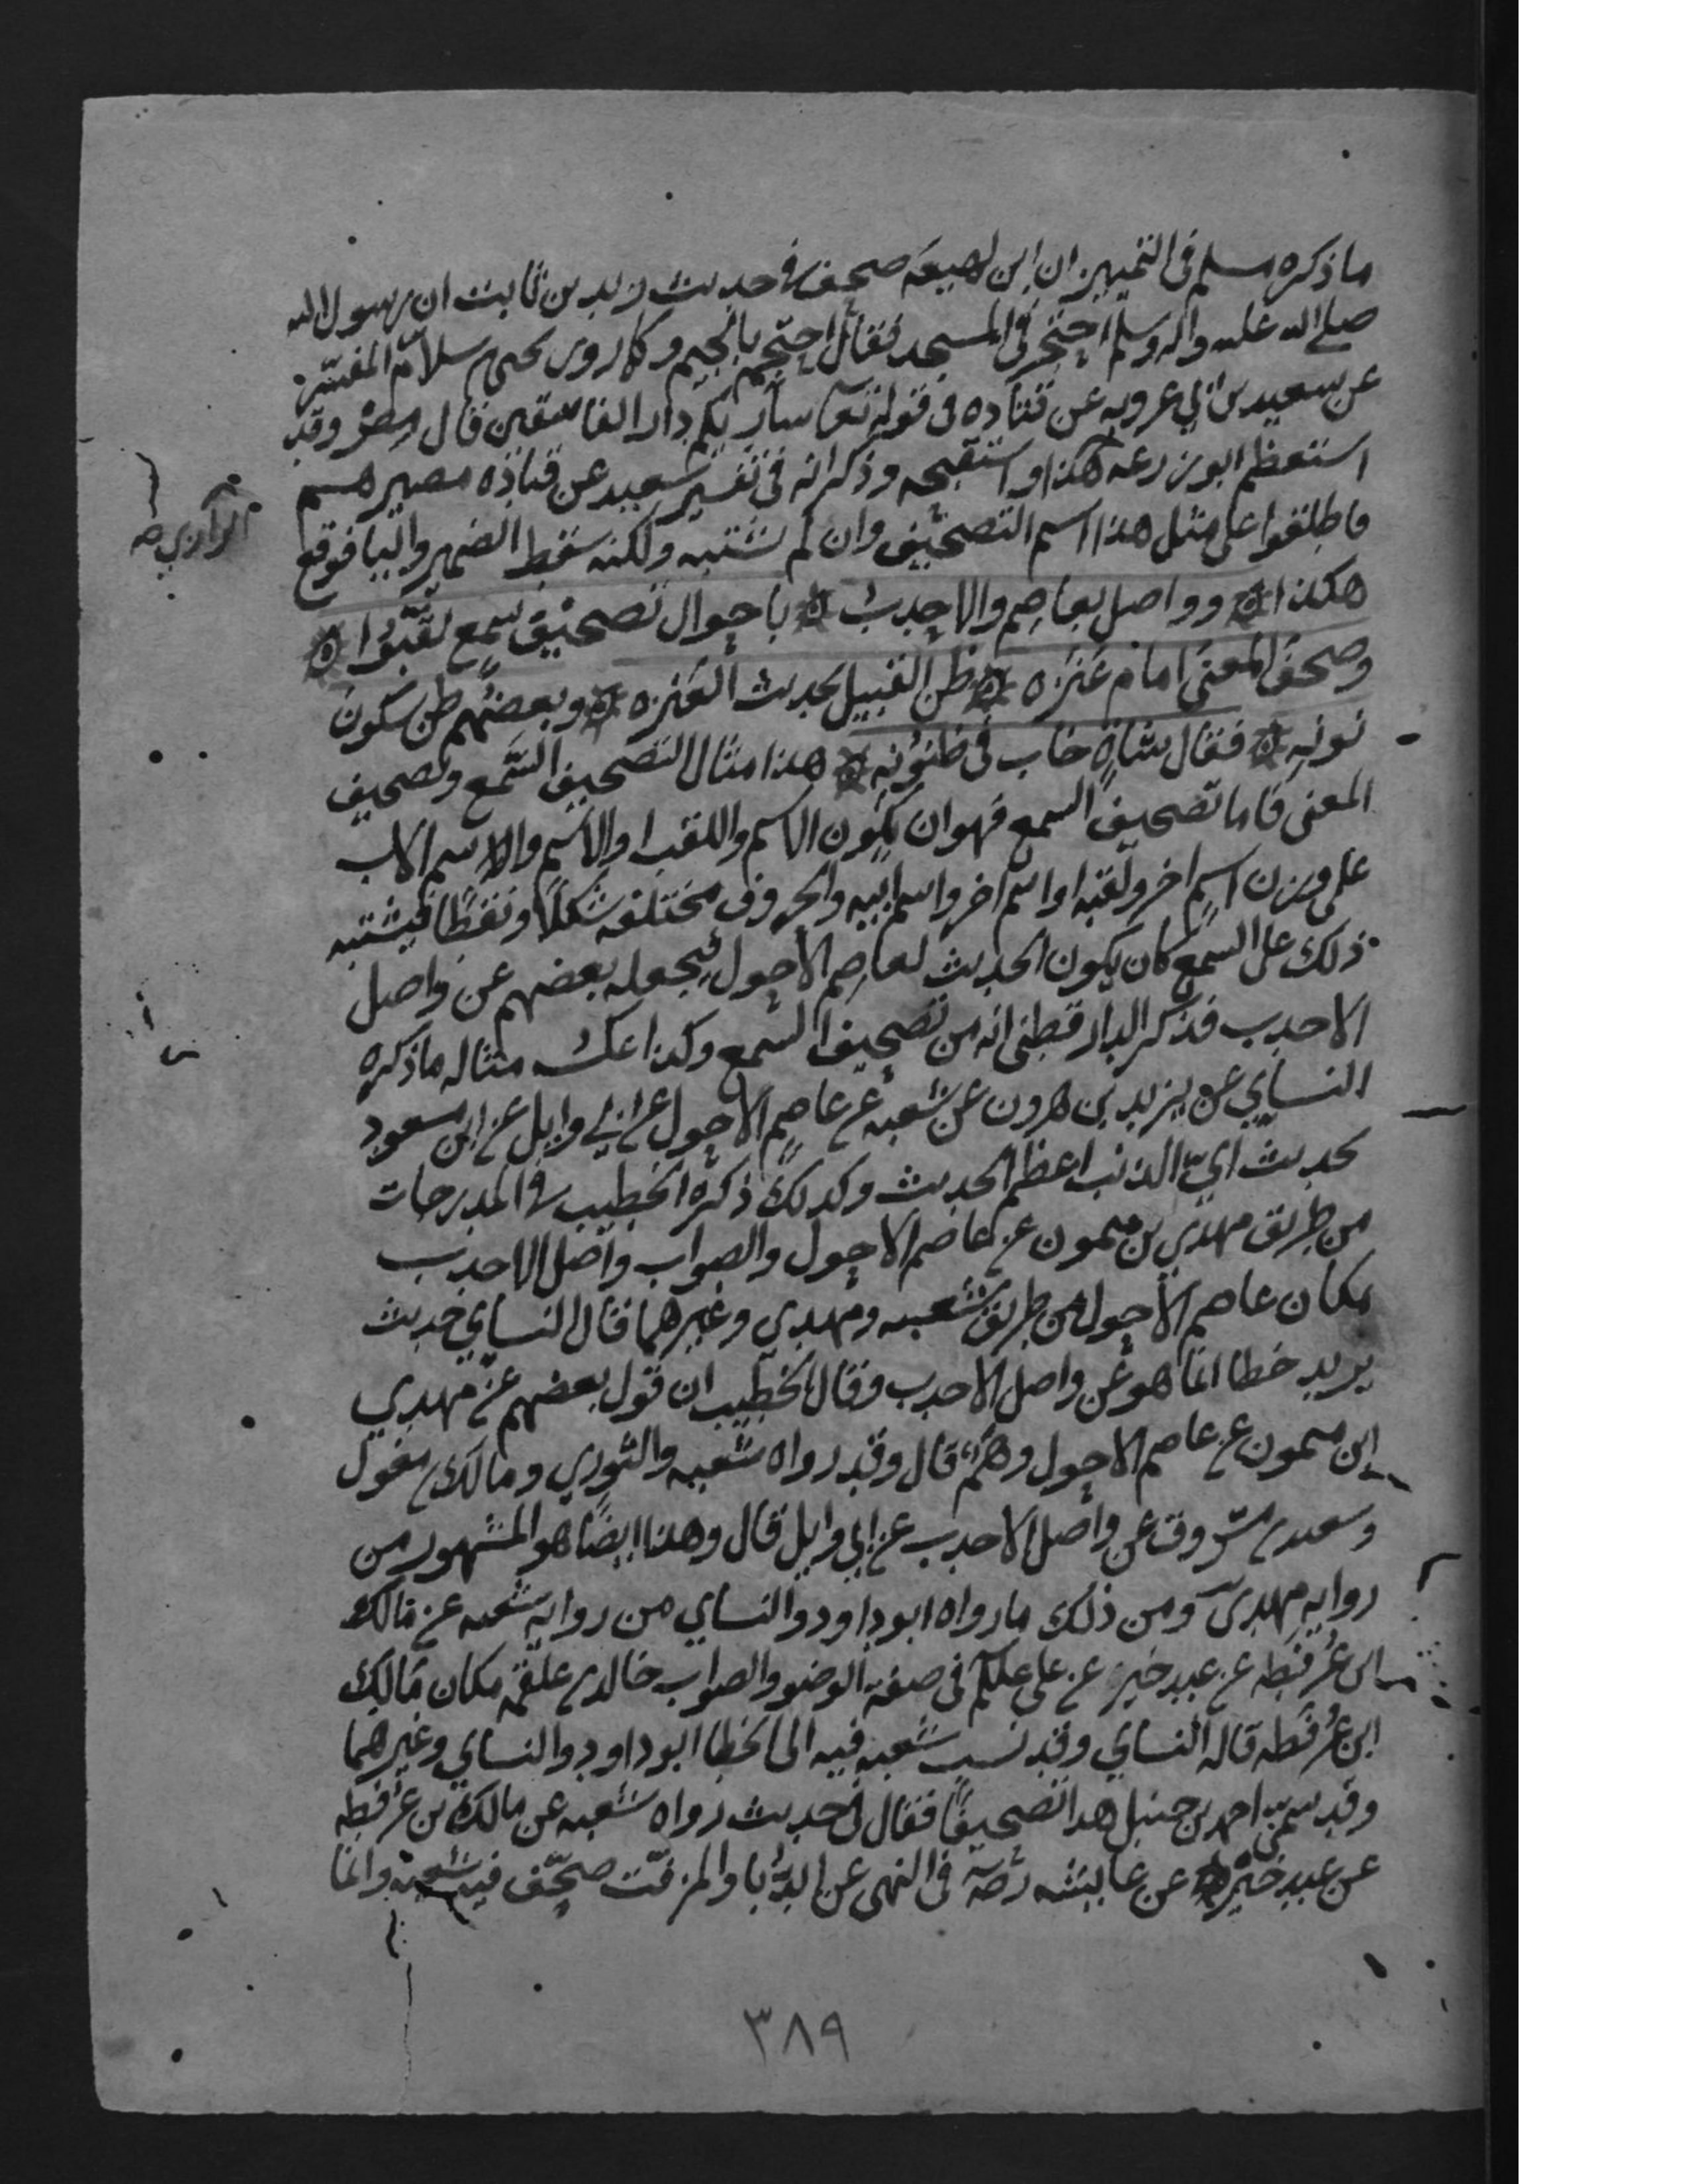 ما ذكره مسلم فى التمييز ان ابن لهيعه صحف في حديث زيد بن ثابت ان رسول الله
صلى الله عليه واله وسلم احتجر فى المسجد فقال احتجم بالجيم وكما روى يحيى بن سلام المفسر
عن سعيد بن ابي عروبه عن قتاده فى قوله تعا ساريكم دار الفاسقين قال مصر وقد
استعظم ابو زرعه هذا واستقبحه وذكر انه فى تفسير سعيد عن قتاده مصيرهم
فاطلقوا على مثل هذا اسم التصحيف وان لم يشتبه ولكنه سقط الضمير واليا فوقع
الرازي صح
هكذا ۞ وواصل بعاصم والاحدب ۞ باحول تصحيف سمع لقبوا ۞
وصحف المعنى امام عنزه ۞ ظن القبيل بحديث العنزه ۞ وبعضهم ظن سكون
نونه ۞ فقال شاة خاب فى ظنونه ۞ هذا مثال التصحيف السمع وتصحيف
المعنى فاما تصحيف السمع فهو ان يكون الاسم واللقب او الاسم والاسم الاب
على وزن اسم اخر ولقبه او اسم اخر واسم ابيه والحروف مختلفه شكلا ونقطا فيشتبه
ذلك على السمع كان يكون الحديث لعاصم الاحول فيجعله بعضهم عن واصل
الاحدب فذكر الدارقطنى انه من تصحيف السمع وكذا عكسه مثاله ما ذكره
النساي عن يزيد بن هرون عن شعبه عن عاصم الاحول عن ابي وايل عن ابن مسعود
بحديث اي الذنب اعظم الحديث وكذلك ذكره الخطيب في المدرجات
من طريق مهدي بن ميمون عن عاصم الاحول والصواب واصل الاحدب
مكان عاصم الاحول من طريق شعبه ومهدي وغيرهما قال النساي حديث
يزيد خطا انما هو عن واصل الاحدب وقال الخطيب ان قول بعضهم عن مهدي
ابن ميمون عن عاصم الاحول وهم قال وقد رواه شعبه والثوري ومالك بن مغول
وسعيد بن مسروق عن واصل الاحدب عن ابي وايل قال وهذا ايضا هو المشهور من
روايه مهدي ومن ذلك ما رواه ابو داود والنساي من روايه شعبه عن مالك
ابن عرفطه عن عبد خير عن على علكم فى صفه الوضو والصواب خالد بن علقمه مكان مالك
ابن عرفطه قاله النساي وقد نسب شعبه فيه الى الخطا ابو داود والنساي وغيرهما
وقد سمى احمد بن حنبل هذا تصحيفا فقال فى حديث رواه شعبه عن مالك بن عرفطه
عن عبد خير عن عايشه رضه فى النهى عن الدبا والمزفت صحف فيه شعبه وانما
٣٨٩